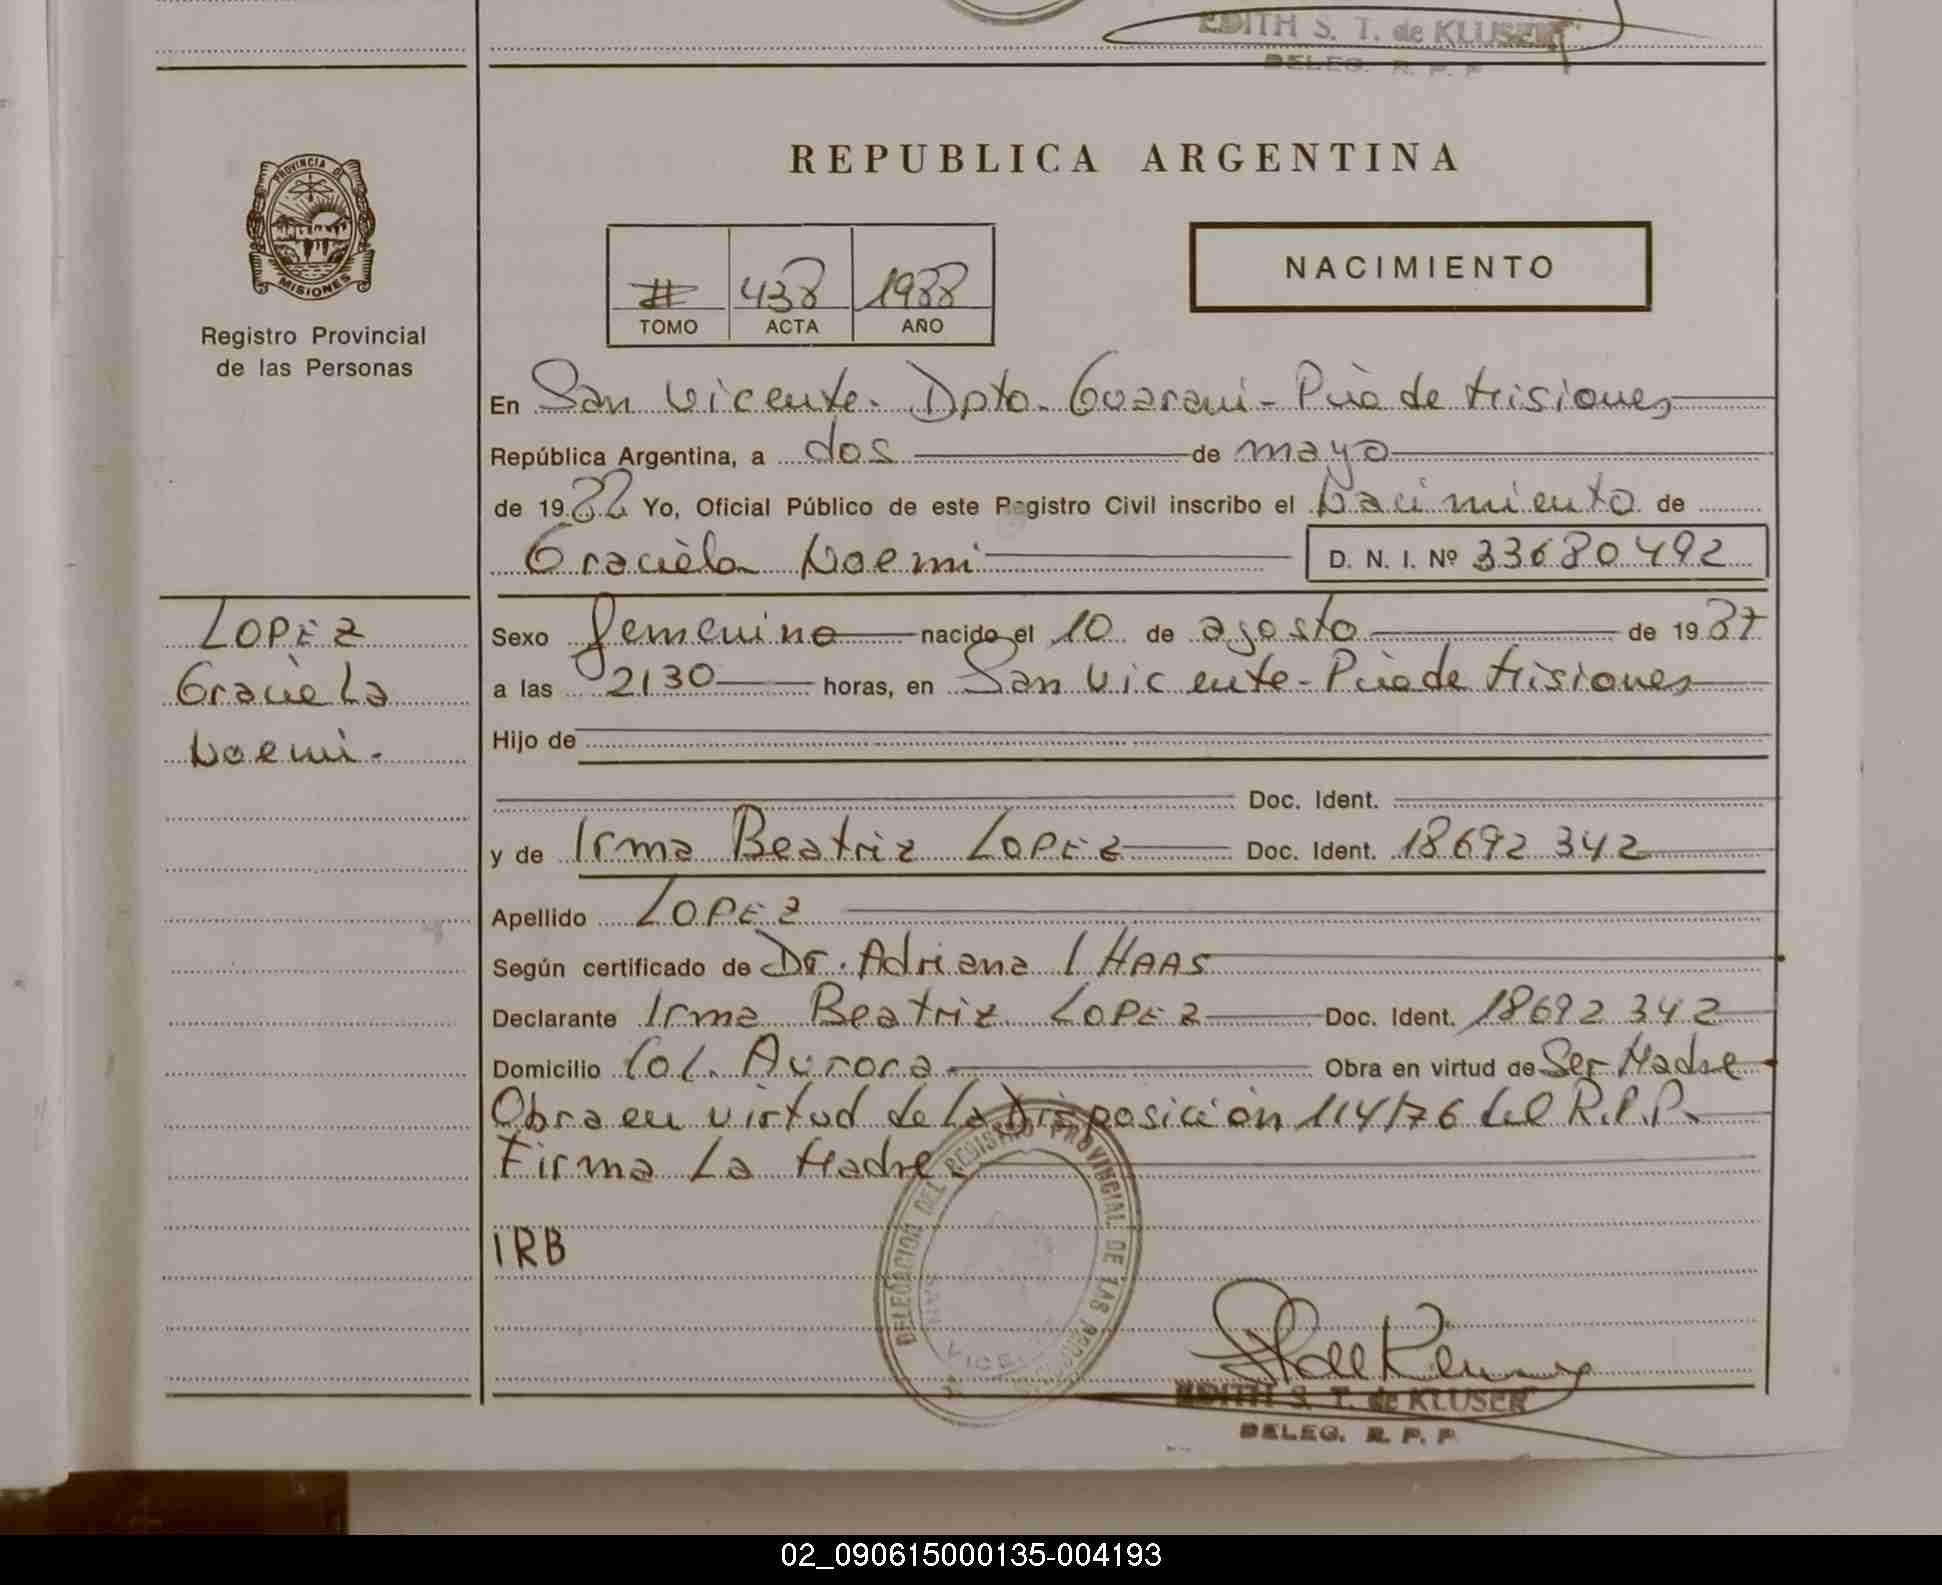 EDITH S. T. de KLUSER
DELEG. R. P. P
PROVINCIA DE
MISIONES
Registro Provincial
de las Personas
REPUBLICA ARGENTINA
# 438 1988
TOMO ACTA AÑO
NACIMIENTO
En San Vicente. Dpto. Guarani - Pcia de Misiones
República Argentina, a dos de mayo
de 1988 Yo, Oficial Público de este Registro Civil inscribo el Nacimiento de
Graciela Noemi D. N. I. Nº 33680492
LOPEZ
Graciela
Noemi.
Sexo femenino nacido el 10 de agosto de 1987
a las 2130 horas, en San Vicente - Pcia de Misiones
Hijo de
Doc. Ident.
y de Irma Beatriz LOPEZ Doc. Ident. 18692 342
Apellido LOPEZ
Según certificado de Dr. Adriana I HAAS
Declarante Irma Beatriz LOPEZ Doc. Ident. 18692 342
Domicilio Col. Aurora Obra en virtud de Ser Madre
Obra en virtud de La Disposición 114/76 del R.P.P.
Firma La Madre.
IRB
DELEGACION DEL REGISTRO PROVINCIAL DE LAS
SAN
EDITH S. T. de KLUSER
DELEG. R. P. P
02_090615000135-004193